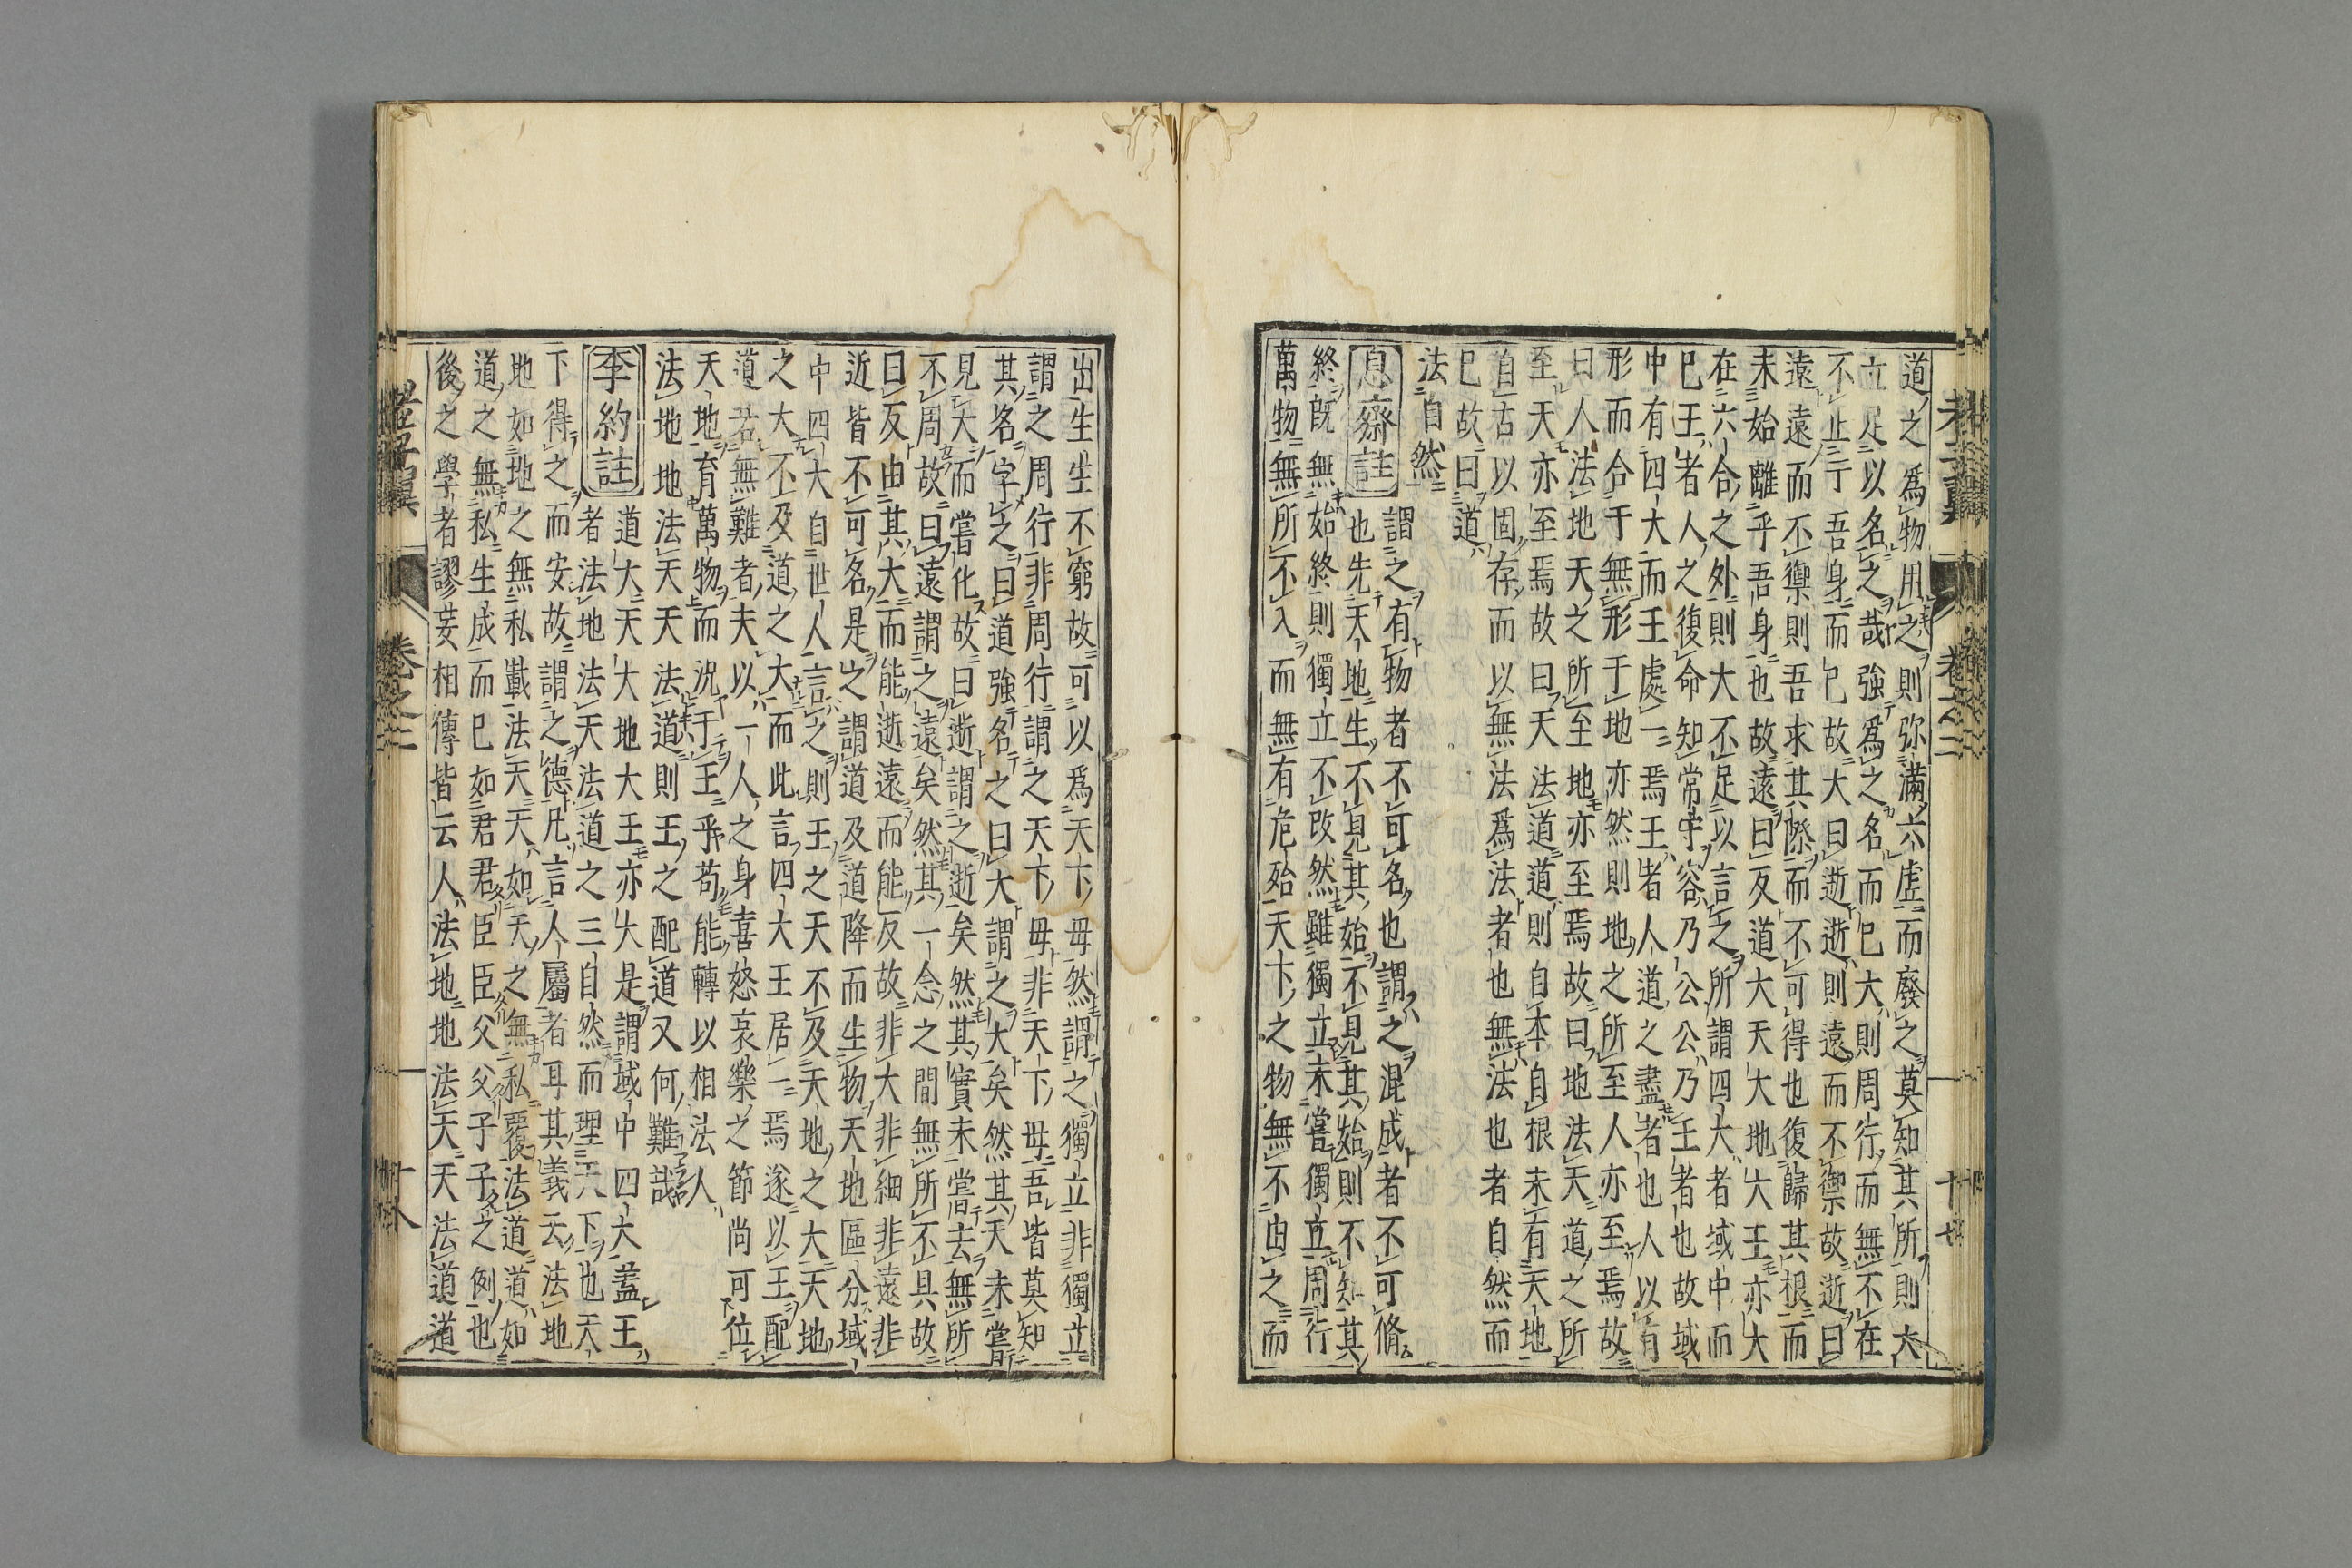 道之爲物用之則弥滿六虛而廢之莫知其所則大
立足以名之哉強爲之名而已大則周行而無不在
不止于吾身而已故大曰逝逝則遠而不禦故逝曰
遠遠而不禦則吾求其際而不可得也復歸其根而
未始離乎吾身也故遠曰反道大天大地大王亦大
在六合之外則大不足以言之所謂四大者域中而
已王者人之復命知常守容乃公公乃王者也故域
中有四大而王處一焉王者人道之盡者也人以有
形而合于無形于地亦然則地之所至人亦至焉故
曰人法地天之所至地亦至焉故曰地法天道之所
至天亦至焉故曰天法道道則自本自根未有天地
自古以固存而以無法爲法者也無法也者自然而
已故曰道
法自然
息齋註
謂之有物者不可名也謂之混成者不可脩
也先天地生不見其始不見其始則不知其
終既無始終則獨立不改然雖獨立未嘗獨立周行
萬物無所不入而無有危殆天下之物無不由之而
老子翼
卷之二
十七
出生生不窮故可以爲天下毋然謂之獨立非獨立
謂之周行非周行謂之天下毋非天下毋吾皆莫知
其名字之曰道強名之曰大謂之大矣然其大未嘗
見大而嘗化故曰逝謂之逝矣然其實未嘗去無所
不周故曰遠謂之遠矣然其一念之間無所不具故
曰反由其大而能逝遠而能反故非大非細非遠非
近皆不可名是之謂道及道降而生物天地區分域
中四大自世人言之則王之天不及天地之大天地
之大不及道之大而此言四大王居一焉遂以王配
道若無難者夫以一人之身喜怒哀樂之節尚可位
天地育萬物而況于王乎苟能轉以相法人
法地地法天天法道則王之配道又何難哉
李約註
道大天大地大王亦大是謂域中四大蓋王
者法地法天法道之三自然而理天下也天
下得之而安故謂之德凡言人屬者耳其義云法地
地如地之無私載法天天如天之無私覆法道道如
道之無私生成而已如君君臣臣父父子子之例也
後之學者謬妄相傳皆云人法地地法天天法道道
老子翼
卷之二
十八